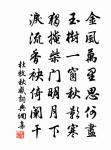 金風萬里思何盡
玉樹一窗秋影寒
獨掩柴門明月下
淚流香袂倚闌干
杜牧秋感詞典網集